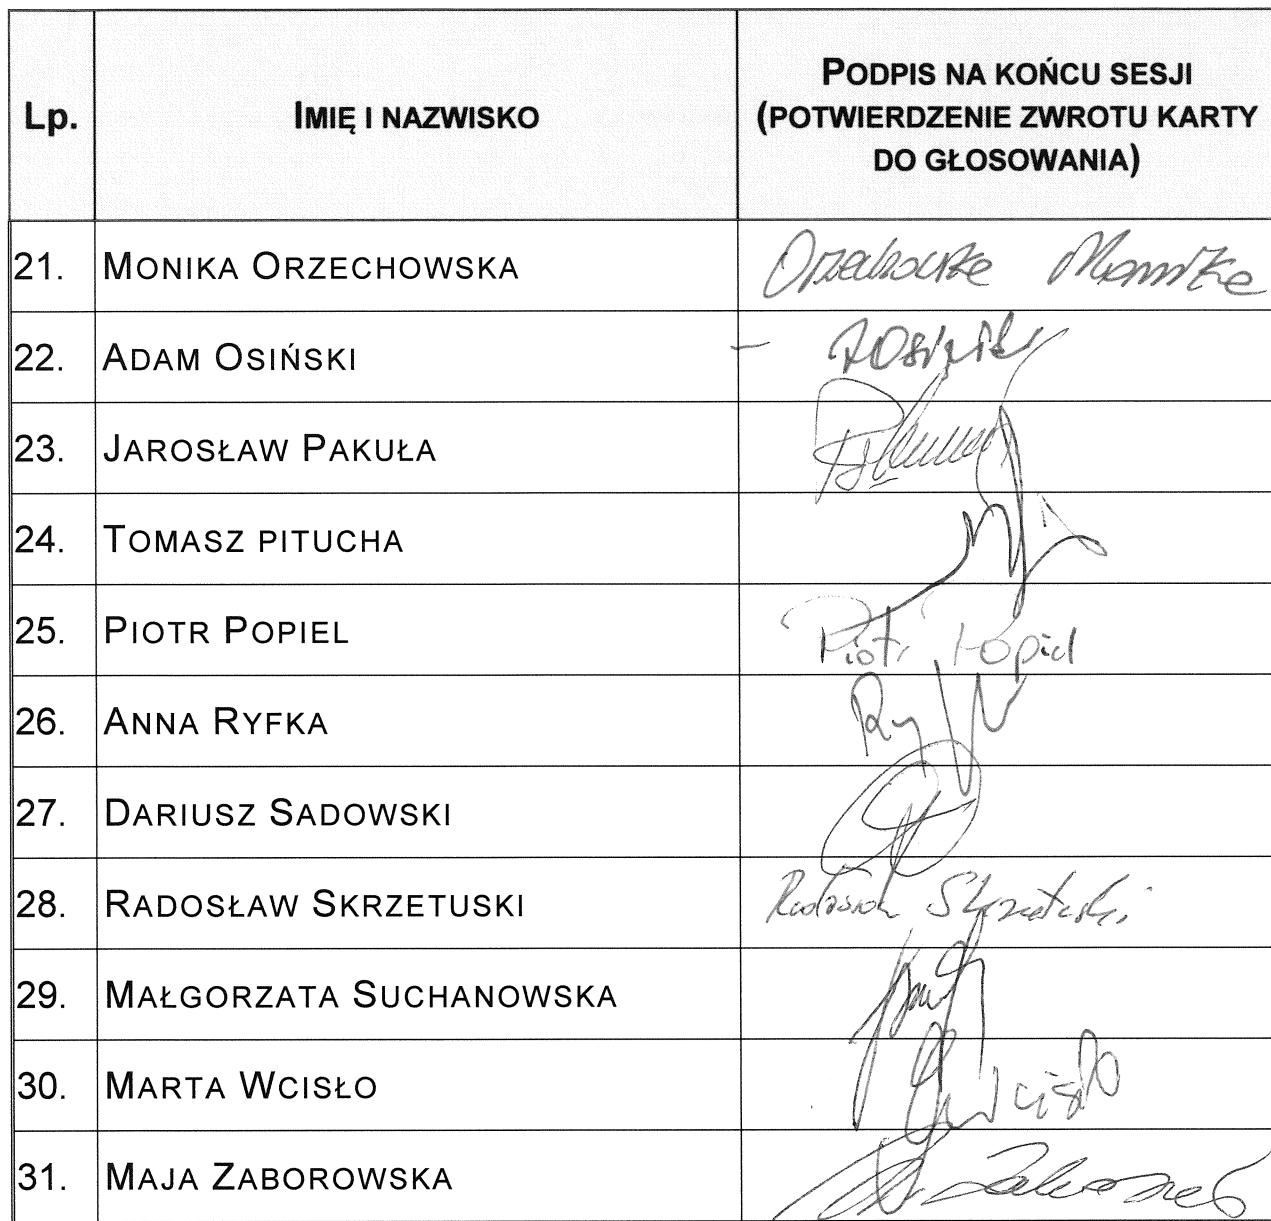 Lp.
IMIĘ I NAZWISKO
PODPIS NA KOŃCU SESJI
(POTWIERDZENIE ZWROTU KARTY
DO GŁOSOWANIA)
21. MONIKA ORZECHOWSKA Orzechowska Monika
22. ADAM OSIŃSKI
23. JAROSŁAW PAKUŁA
24. TOMASZ PITUCHA
25. PIOTR POPIEL Piotr Popiel
26. ANNA RYFKA
27. DARIUSZ SADOWSKI
28. RADOSŁAW SKRZETUSKI Radosław Skrzetuski
29. MAŁGORZATA SUCHANOWSKA
30. MARTA WCISŁO Wcisło
31. MAJA ZABOROWSKA